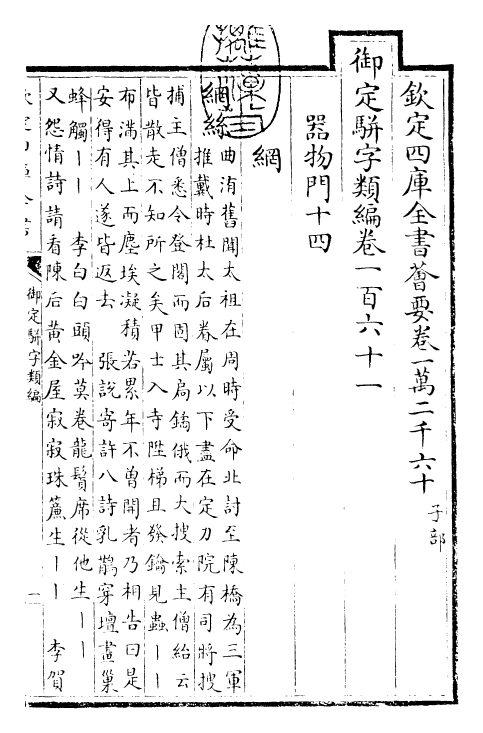 欽定四庫全書薈要卷一萬二千六十 子部
御定駢字類編卷一百六十一
器物門十四
網
網絲 曲洧舊聞太祖在周時受命北討至陳橋為三軍
推戴時杜太后眷屬以下盡在定力院有司將搜
捕主僧悉令登閣而固其扃鐍俄而大搜索主僧紿云
皆散走不知所之矣甲士入寺陞梯且發鑰見蟲丨丨
布滿其上而塵埃凝積若累年不曾開者乃相告曰是
安得有人遂皆返去 張說寄許八詩乳鵲穿壇畫巢
蜂觸丨丨 李白白頭吟莫卷龍鬚席從他生丨丨
又怨情詩請看陳后黃金屋寂寂珠簾生丨丨 李賀
御定駢字類編
一